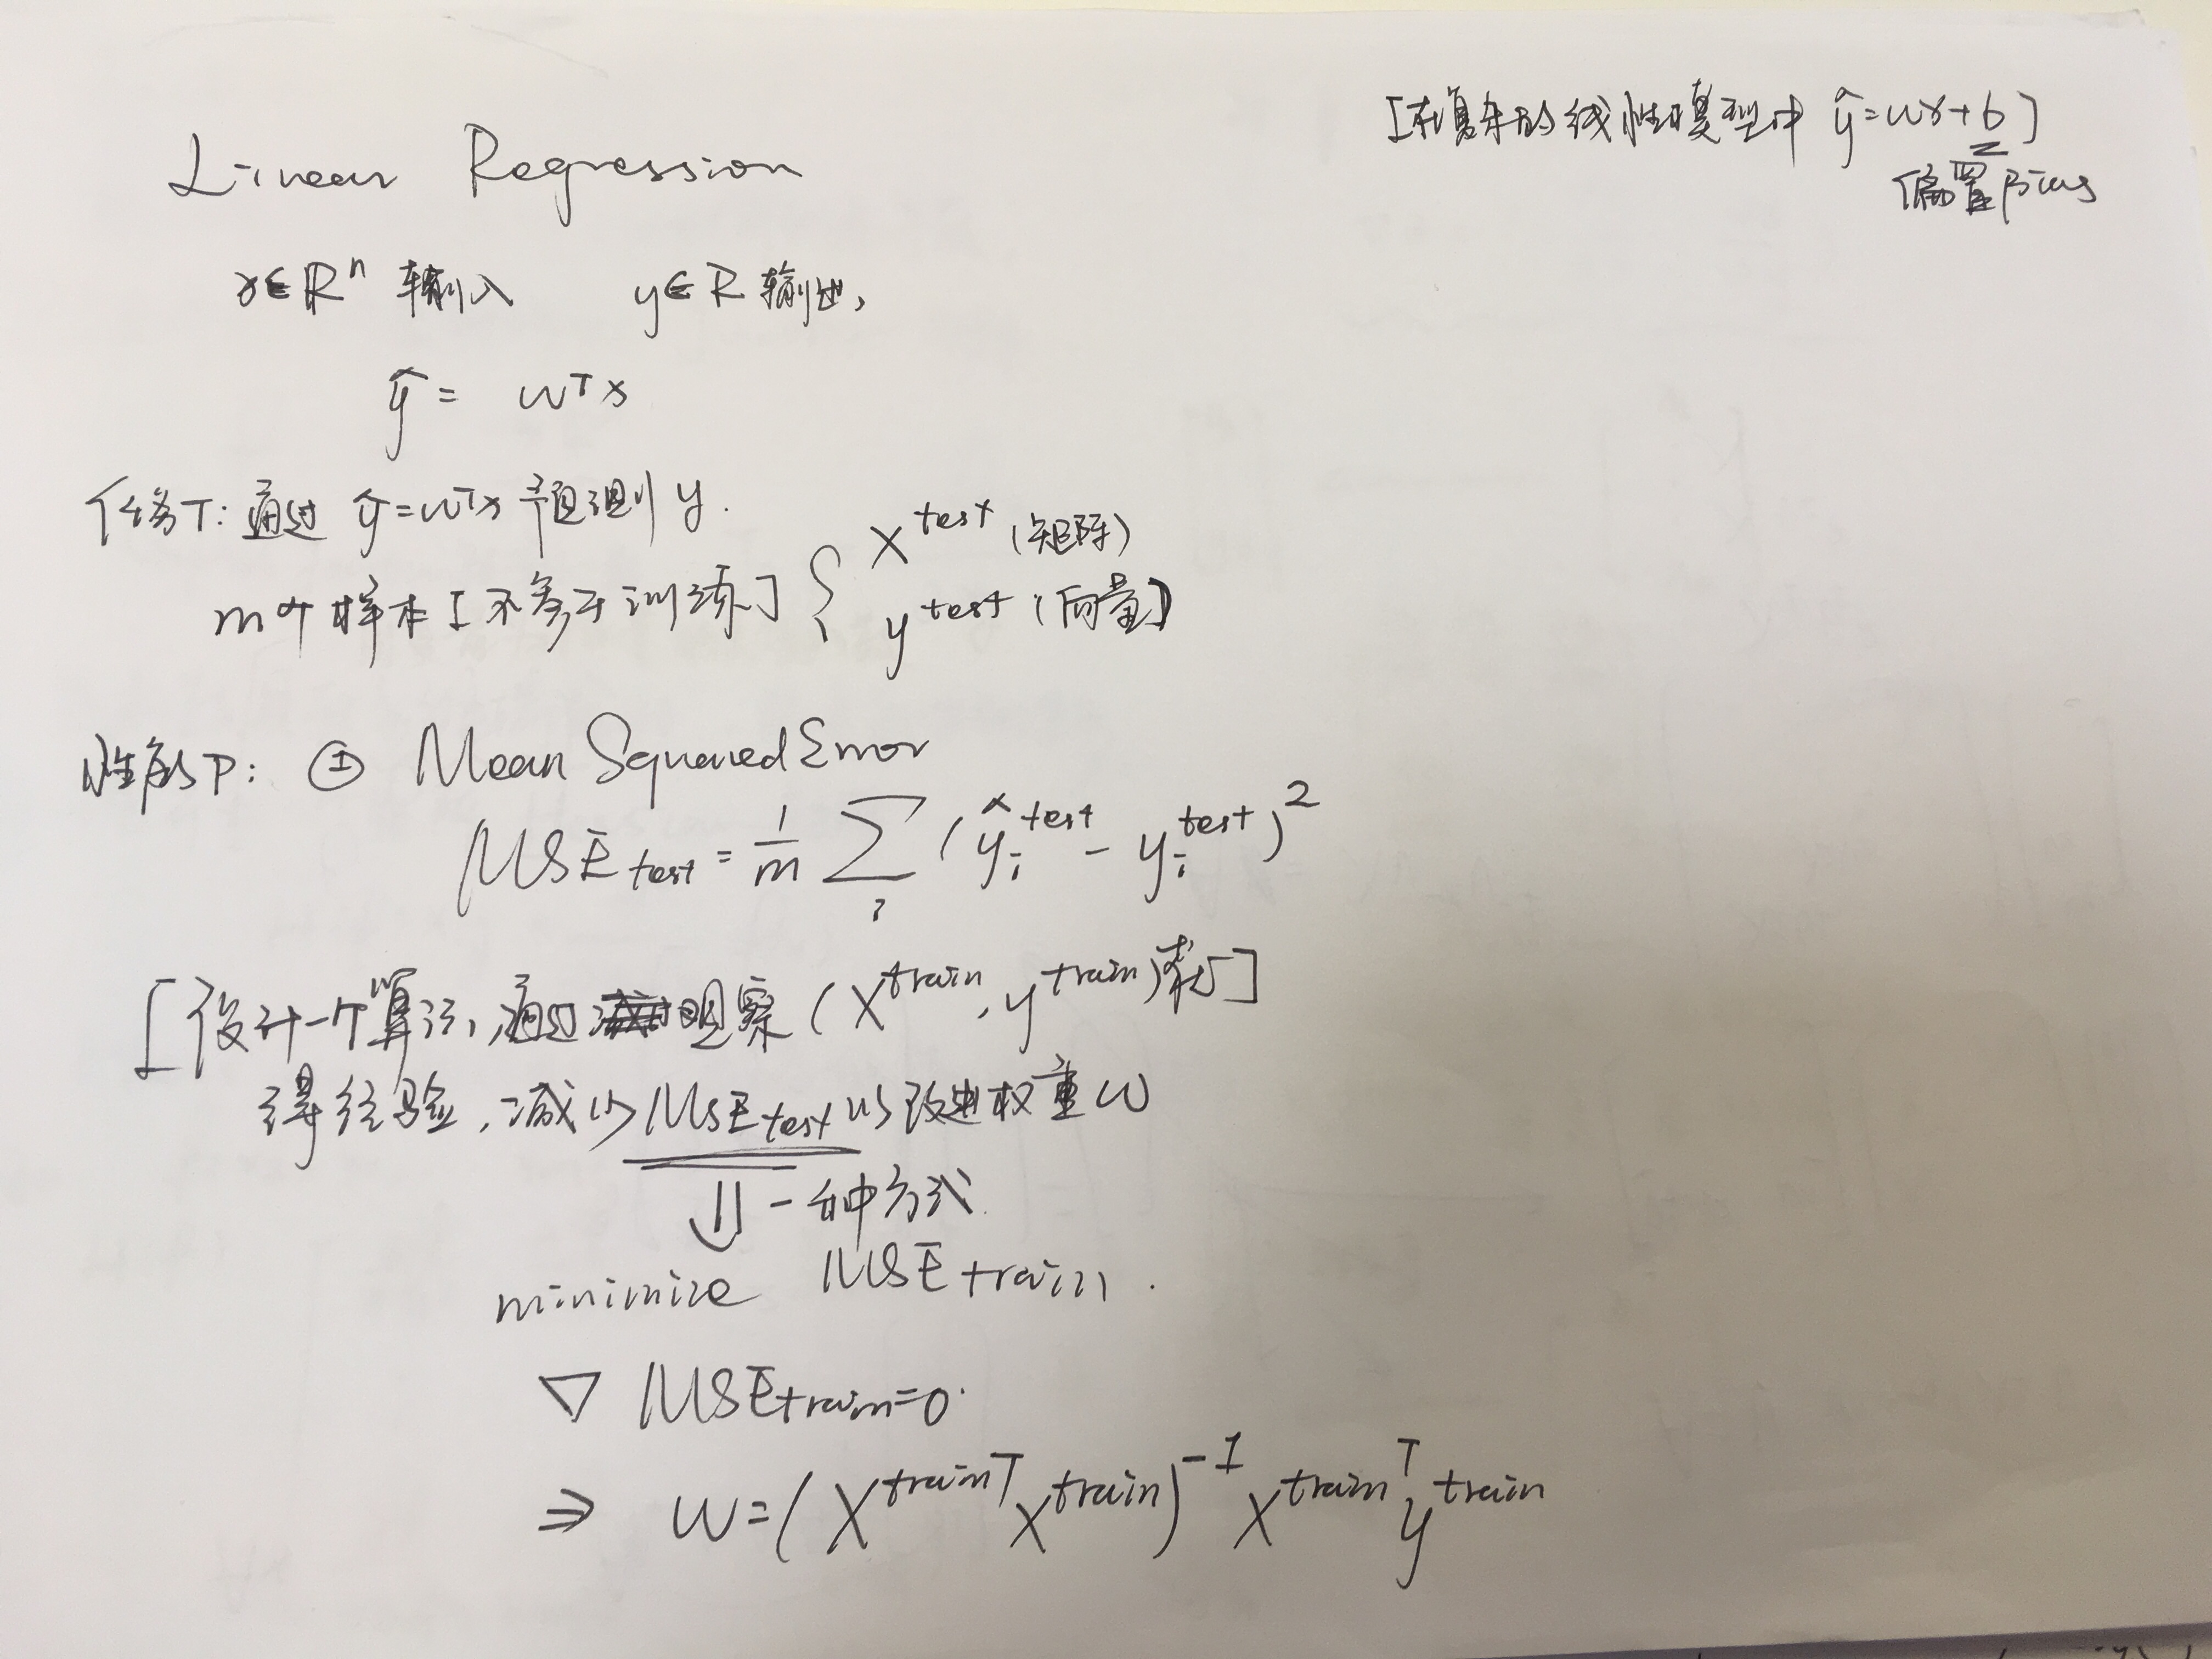 [在复杂的线性模型中 ŷ=wx+b]
偏置 Bias
Linear Regression
x∈Rⁿ 输入 y∈R 输出,
ŷ = wᵀx
任务T: 通过 ŷ=wᵀx 预测 y.
m个样本[不参于训练] { X^test (矩阵)
y^test (向量)
性能P: ① Mean Squared Error
MSE_test = 1/m ∑_i (ŷ_i^test - y_i^test)²
[设计一个算法, 通过观察 (X^train, y^train) 获]
得经验, 减少MSE_test以改进权重w
⇓ 一种方式
minimize MSE_train.
∇ MSE_train=0.
⇒ w=(X^trainᵀ X^train)^-1 X^trainᵀ y^train